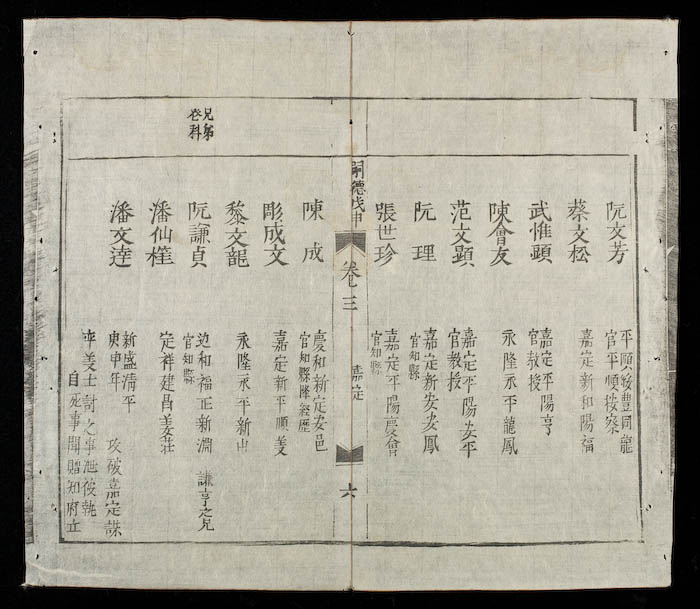 阮文芳
平順綏豐同龍
官平順按察
蔡文松
嘉定新和陽福
武惟顕
嘉定平陽亨
官教授
陳會友
永隆永平龍鳳
范文顕
嘉定平陽安平
官教授
阮理
嘉定新安安鳳
官知縣
張世珍
嘉定平陽慶會
官知縣
嗣德戊申
卷三
嘉定
六
陳成
慶和新定安邑
官知縣陞經歷
彫成文
嘉定新平順美
黎文龍
永隆永平新中
兄弟
仝科
阮謙貞
边和福正新淵 謙亨之兄
官知縣
潘仙
定祥建昌美莊
潘文達
新盛清平
庚申年 攻破嘉定謀
義士討之事泄彼執
自死事聞贈知府